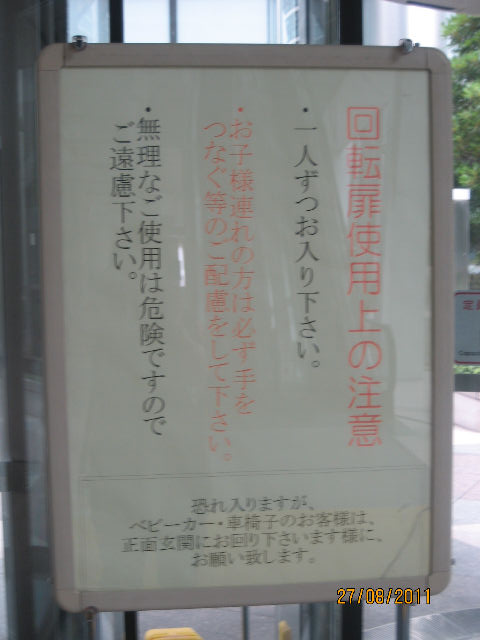 回転扉使用上の注意
・一人ずつお入り下さい。
・お子様連れの方は必ず手を
つなぐ等のご配慮をして下さい。
・無理なご使用は危険ですので
ご遠慮下さい。
恐れ入りますが、
ベビーカー・車椅子のお客様は、
正面玄関にお回り下さいます様に、
お願い致します。
27/08/2011